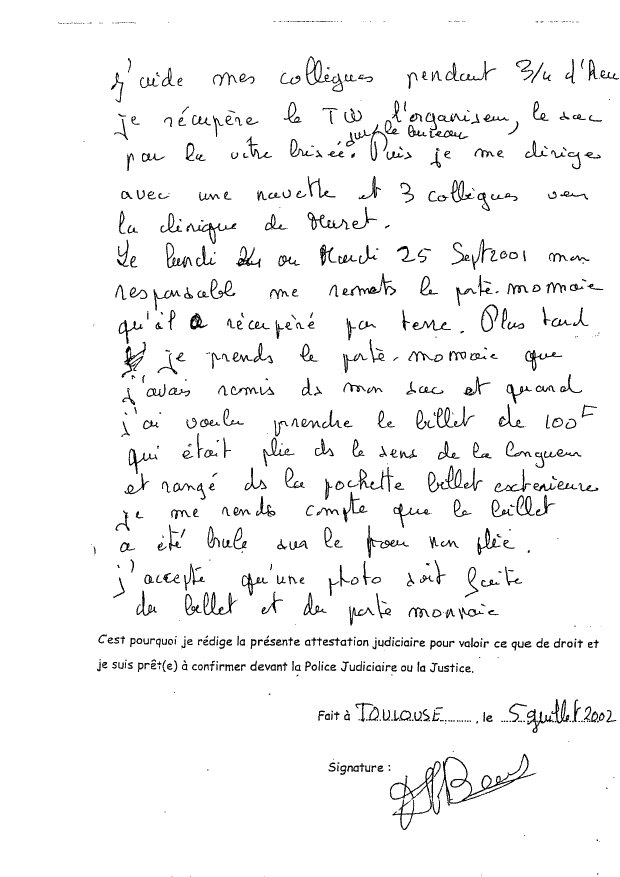 j'aide mes collègues pendant 3/4 d'Heu
je récupère le TW l'organiseur, le sac
sur le bureau
par la vitre brisée. Puis je me diriges
avec une navette et 3 collègues vers
la clinique de Muret.
Le lundi 24 ou Mardi 25 Sept 2001 mon
responsable me remets le porte-monnaie
qu'il a récupéré par terre. Plus tard
je prends le porte-monnaie que
j'avais remis ds mon sac et quand
j'ai voulu prendre le billet de 100F
qui était plie ds le sens de la longueur
et rangé ds la pochette billet exterieure
je me rends compte que le billet
a été brule sur le non plié.
j'accepte qu'une photo soit faite
du billet et du porte monnaie
C'est pourquoi je rédige la présente attestation judiciaire pour valoir ce que de droit et
je suis prêt(e) à confirmer devant la Police Judiciaire ou la Justice.
Fait à TOULOUSE, le 5 juillet 2002
Signature :